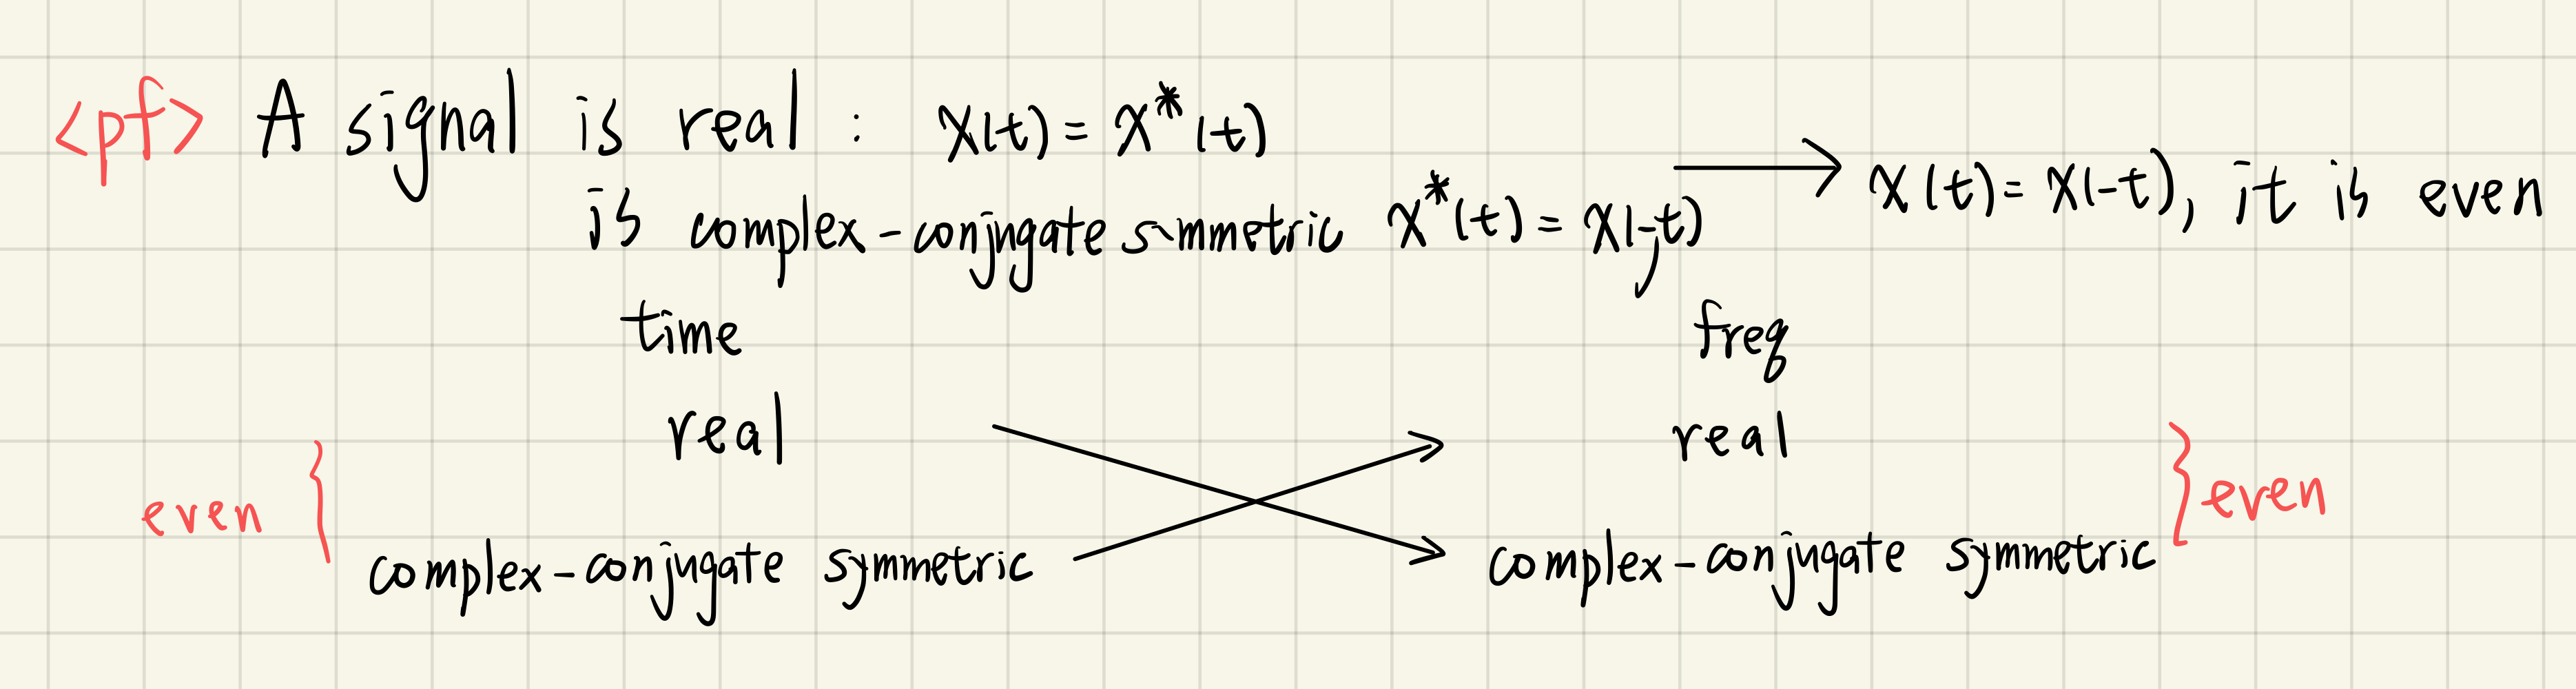 <pf> A signal is real : x(t) = x*(t)
is complex-conjugate symmetric x*(t) = x(-t) → x(t) = x(-t), it is even
time freq
real real
even even
complex-conjugate symmetric complex-conjugate symmetric